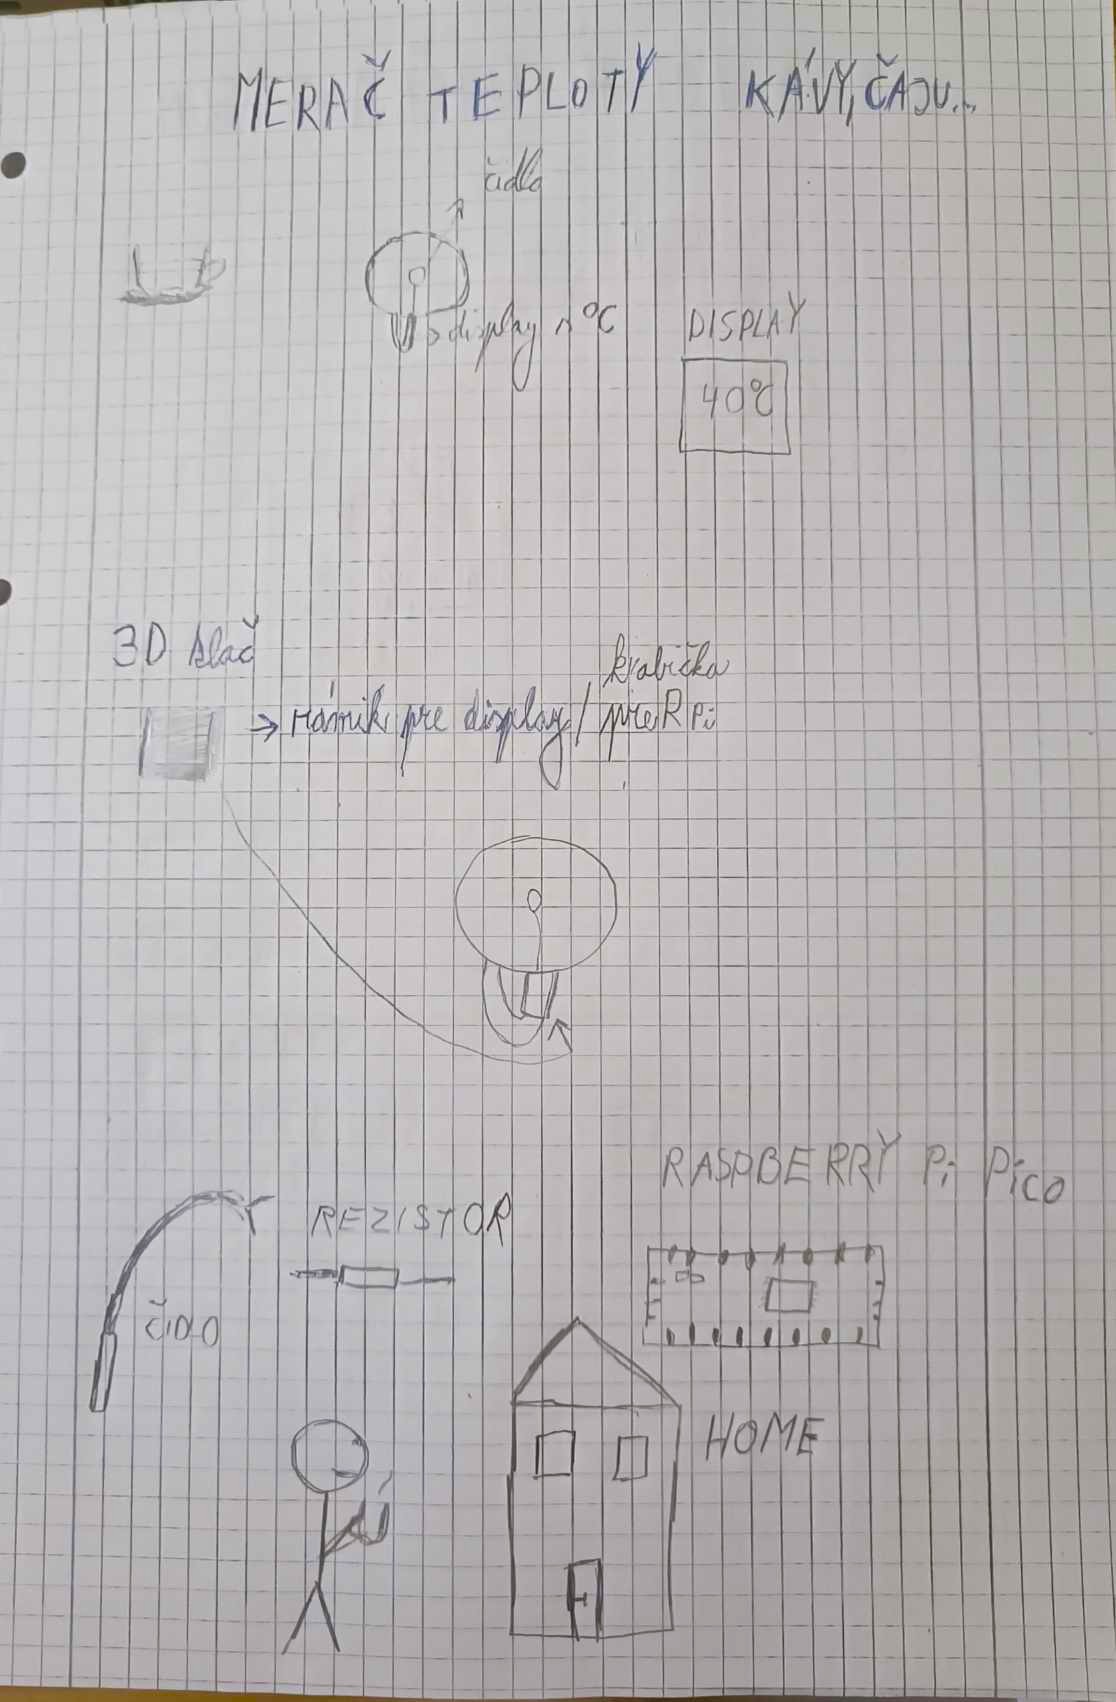 MERAČ TEPLOTY KÁVY, ČAJU...
čidlo
display v °C
DISPLAY
40°C
3D tlač
→ rámik pre display / krabička pre RPi
RASPBERRY Pi Pico
REZISTOR
ČIDLO
HOME